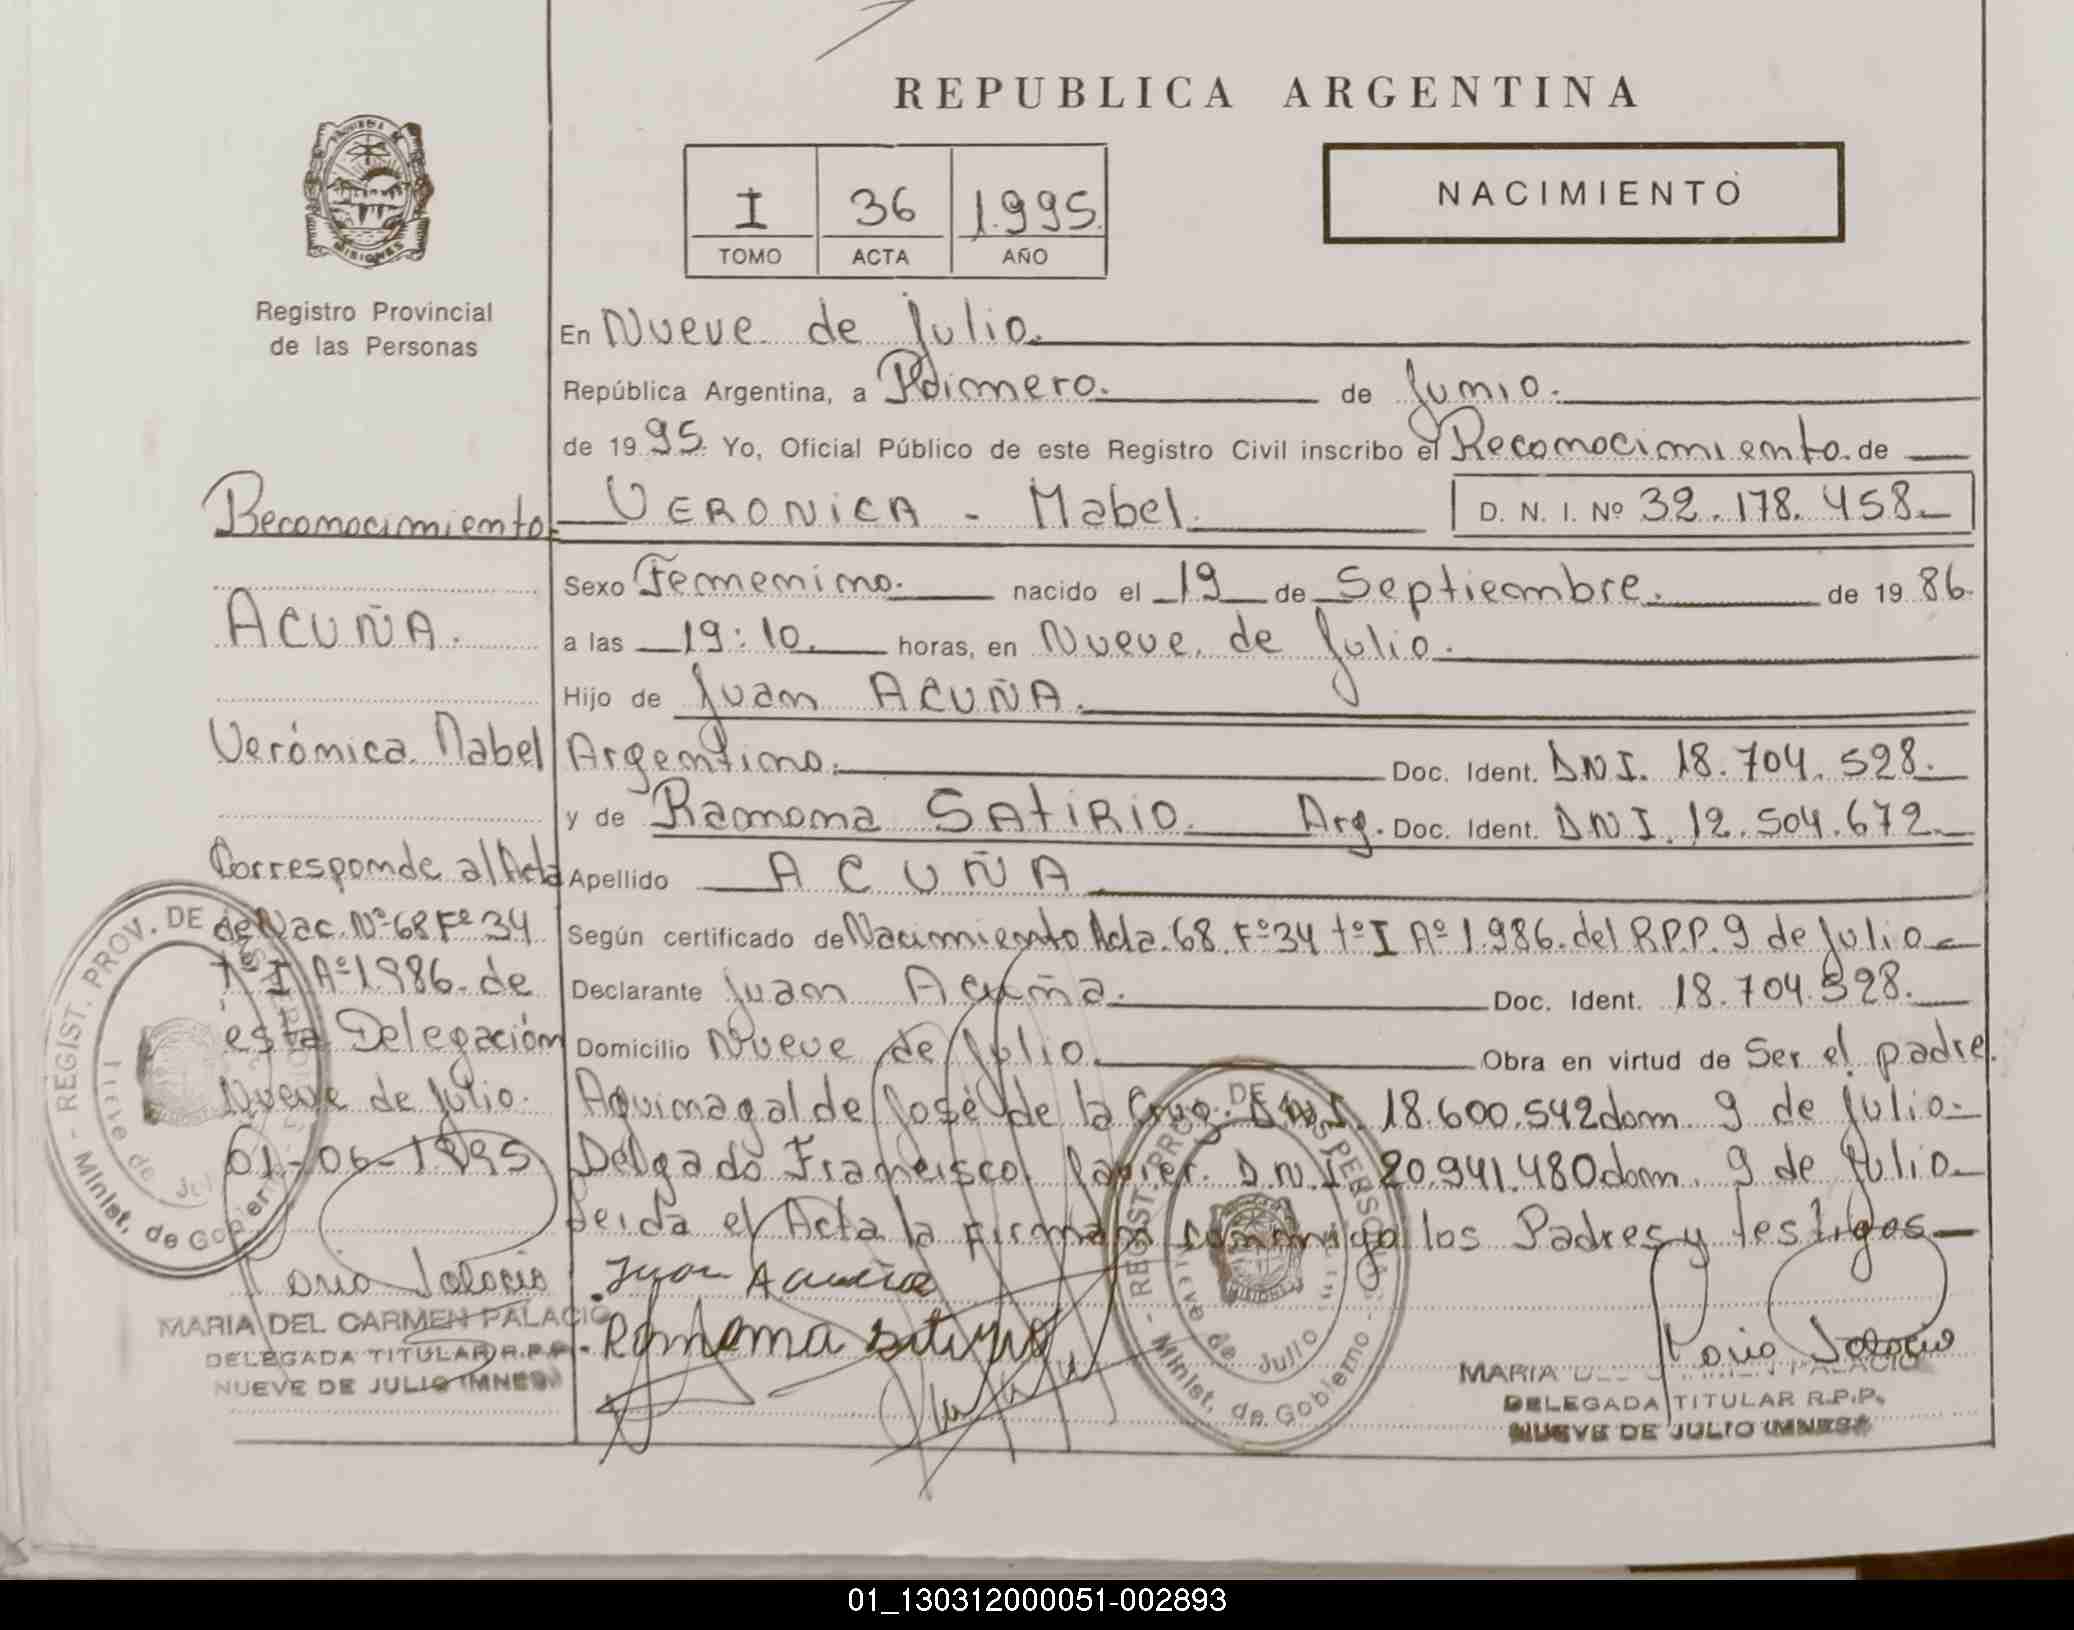 REPUBLICA ARGENTINA
I 36 1.995.
TOMO ACTA AÑO
NACIMIENTO
PROVINCIA DE
MISIONES
Registro Provincial
de las Personas
En Nueve de Julio.
República Argentina, a Primero. de Junio.
de 19 95. Yo, Oficial Público de este Registro Civil inscribo el Reconocimiento. de
VERONICA - Mabel. D. N. I. Nº 32.178.458.
Sexo Femenino. nacido el 19 de Septiembre. de 19 86.
a las 19:10. horas, en Nueve de Julio.
Hijo de Juan ACUÑA.
Argentino. Doc. Ident. D.N.I. 18.704.528.
y de Ramona SATIRIO. Arg. Doc. Ident. D.N.I. 12.504.672
Apellido ACUÑA
Según certificado de Nacimiento Acta 68 Fº 34 tº I Aº 1.986. del R.P.P. 9 de Julio
Declarante Juan Acuña. Doc. Ident. 18.704.528.
Domicilio Nueve de Julio. Obra en virtud de Ser el padre.
Aquinagalde José de la Cruz. D.N.I. 18.600.542 dom. 9 de Julio.
Delgado Francisco Javier. D.N.I. 20.941.480 dom. 9 de Julio
Leida el Acta la firman conmigo los Padres y testigos
Juan Acuña
Ramona
Reconocimiento
ACUÑA.
Verónica Mabel
Corresponde al Acta
de Nac. Nº 68 Fº 34
Tº I Aº 1.986. de
esta Delegación
Nueve de Julio.
01-06-1995
MARIA DEL CARMEN PALACIO
DELEGADA TITULAR R.P.P.
NUEVE DE JULIO (MNES.)
REGIST. PROV. DE LAS PERSONAS - Minist. de Gobierno -
Nueve de Julio
REGIST. PROV. DE LAS PERSONAS - Minist. de Gobierno -
Nueve de Julio
MISIONES
MARIA DEL CARMEN PALACIO
DELEGADA TITULAR R.P.P.
NUEVE DE JULIO (MNES.)
01_130312000051-002893